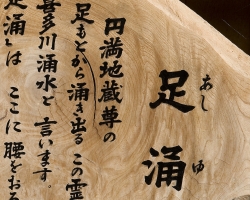 足湧
あし ゆ
円満地蔵尊の
足もとから湧き出るこの霊
喜多川湧水と言います。
足湧」は ここに腰をおろ